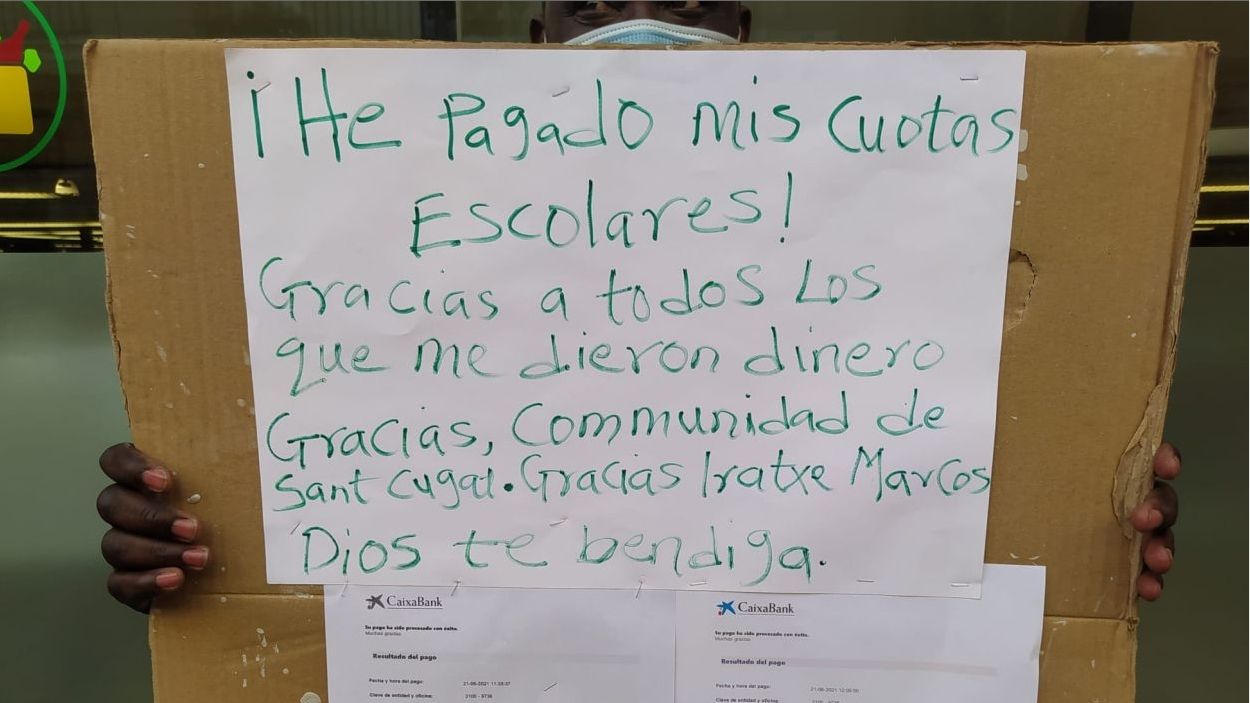 ¡He Pagado mis Cuotas
Escolares!
Gracias a todos Los
que me dieron dinero
Gracias, Communidad de
Sant Cugat. Gracias Iratxe Marcos
Dios te bendiga.
CaixaBank
Su pago ha sido procesado con éxito.
Muchas gracias
Resultado del pago
Fecha y hora del pago:
Clave de entidad y oficina: 2100 - 9736
CaixaBank
Su pago ha sido procesado con éxito.
Muchas gracias
Resultado del pago
Fecha y hora del pago:
Clave de entidad y oficina: 2100 - 9736